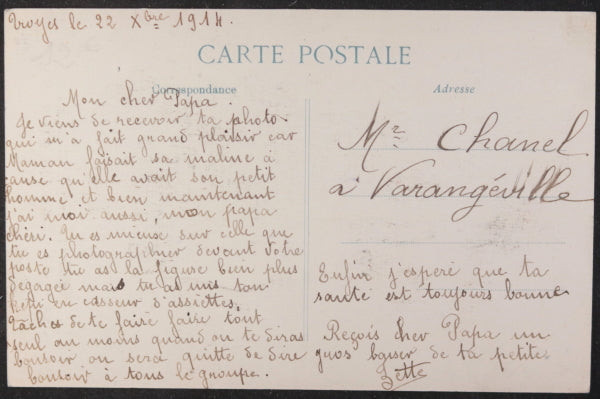 Troyes le 22 Xbre 1914.
CARTE POSTALE
Correspondance
Adresse
Mon cher Papa.
Je viens de recevoir ta photo.
qui m'a fait grand plaisir car
Maman faisait sa maline à
cause qu'elle avait son petit
homme, et bien maintenant
j'ai moi aussi, mon papa
chéri. Tu es mieuse sur celle que
tu es photographier devant votre
poste tu as la figure bien plus
dégagée mais tu as mis ton
képi en casseur d'assiettes.
Tâches de te faire faire tout
seul au moins quand on te diras
bonsoir on serai quitte de dire
bonsoir à tous le groupe.
Mr Chanel
à Varangéville
Enfin j'espère que ta
santé est toujours bonne
Reçois cher Papa un
gros baiser de ta petite
Zette